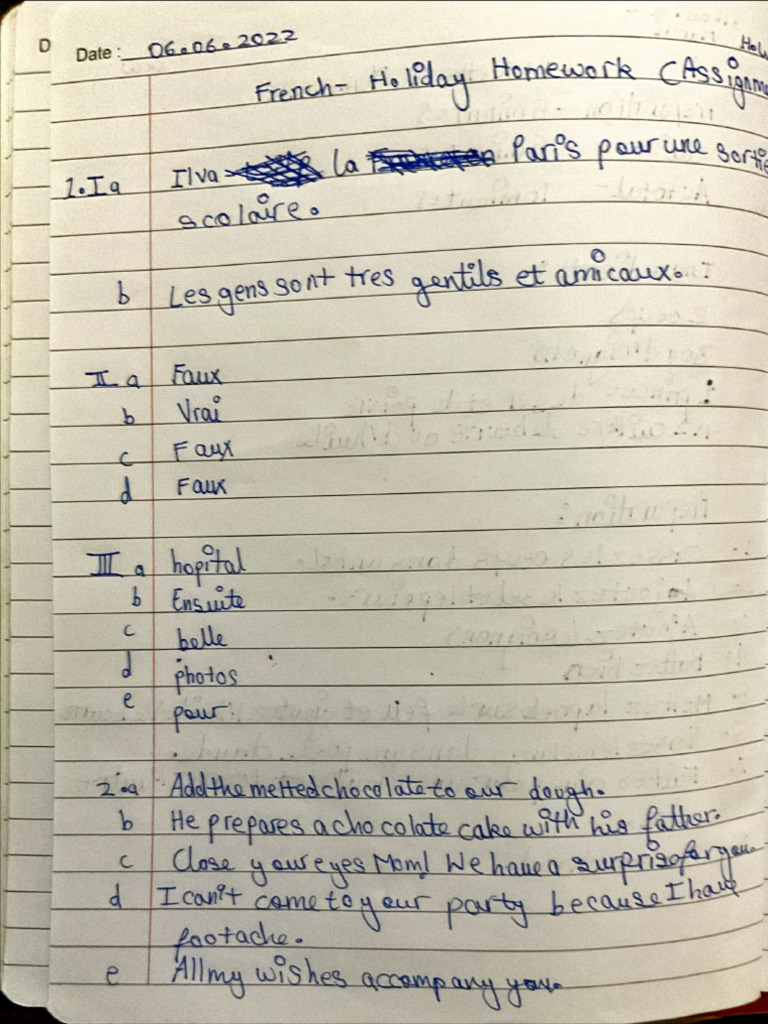 D
Date : 06.06.2022
French - Holiday Homework (Assignme
1. I a Il va la Paris pour une sortie
scolaire.
b Les gens sont tres gentils et amicaux.
II a Faux
b Vrai
c Faux
d Faux
III a hopital
b Ensuite
c belle
d photos
e pour.
2. a Add the melted chocolate to our dough.
b He prepares a chocolate cake with his father.
c Close your eyes Mom! We have a surprise for you.
d I can't come to your party because I have
footache.
e All my wishes accompany you.